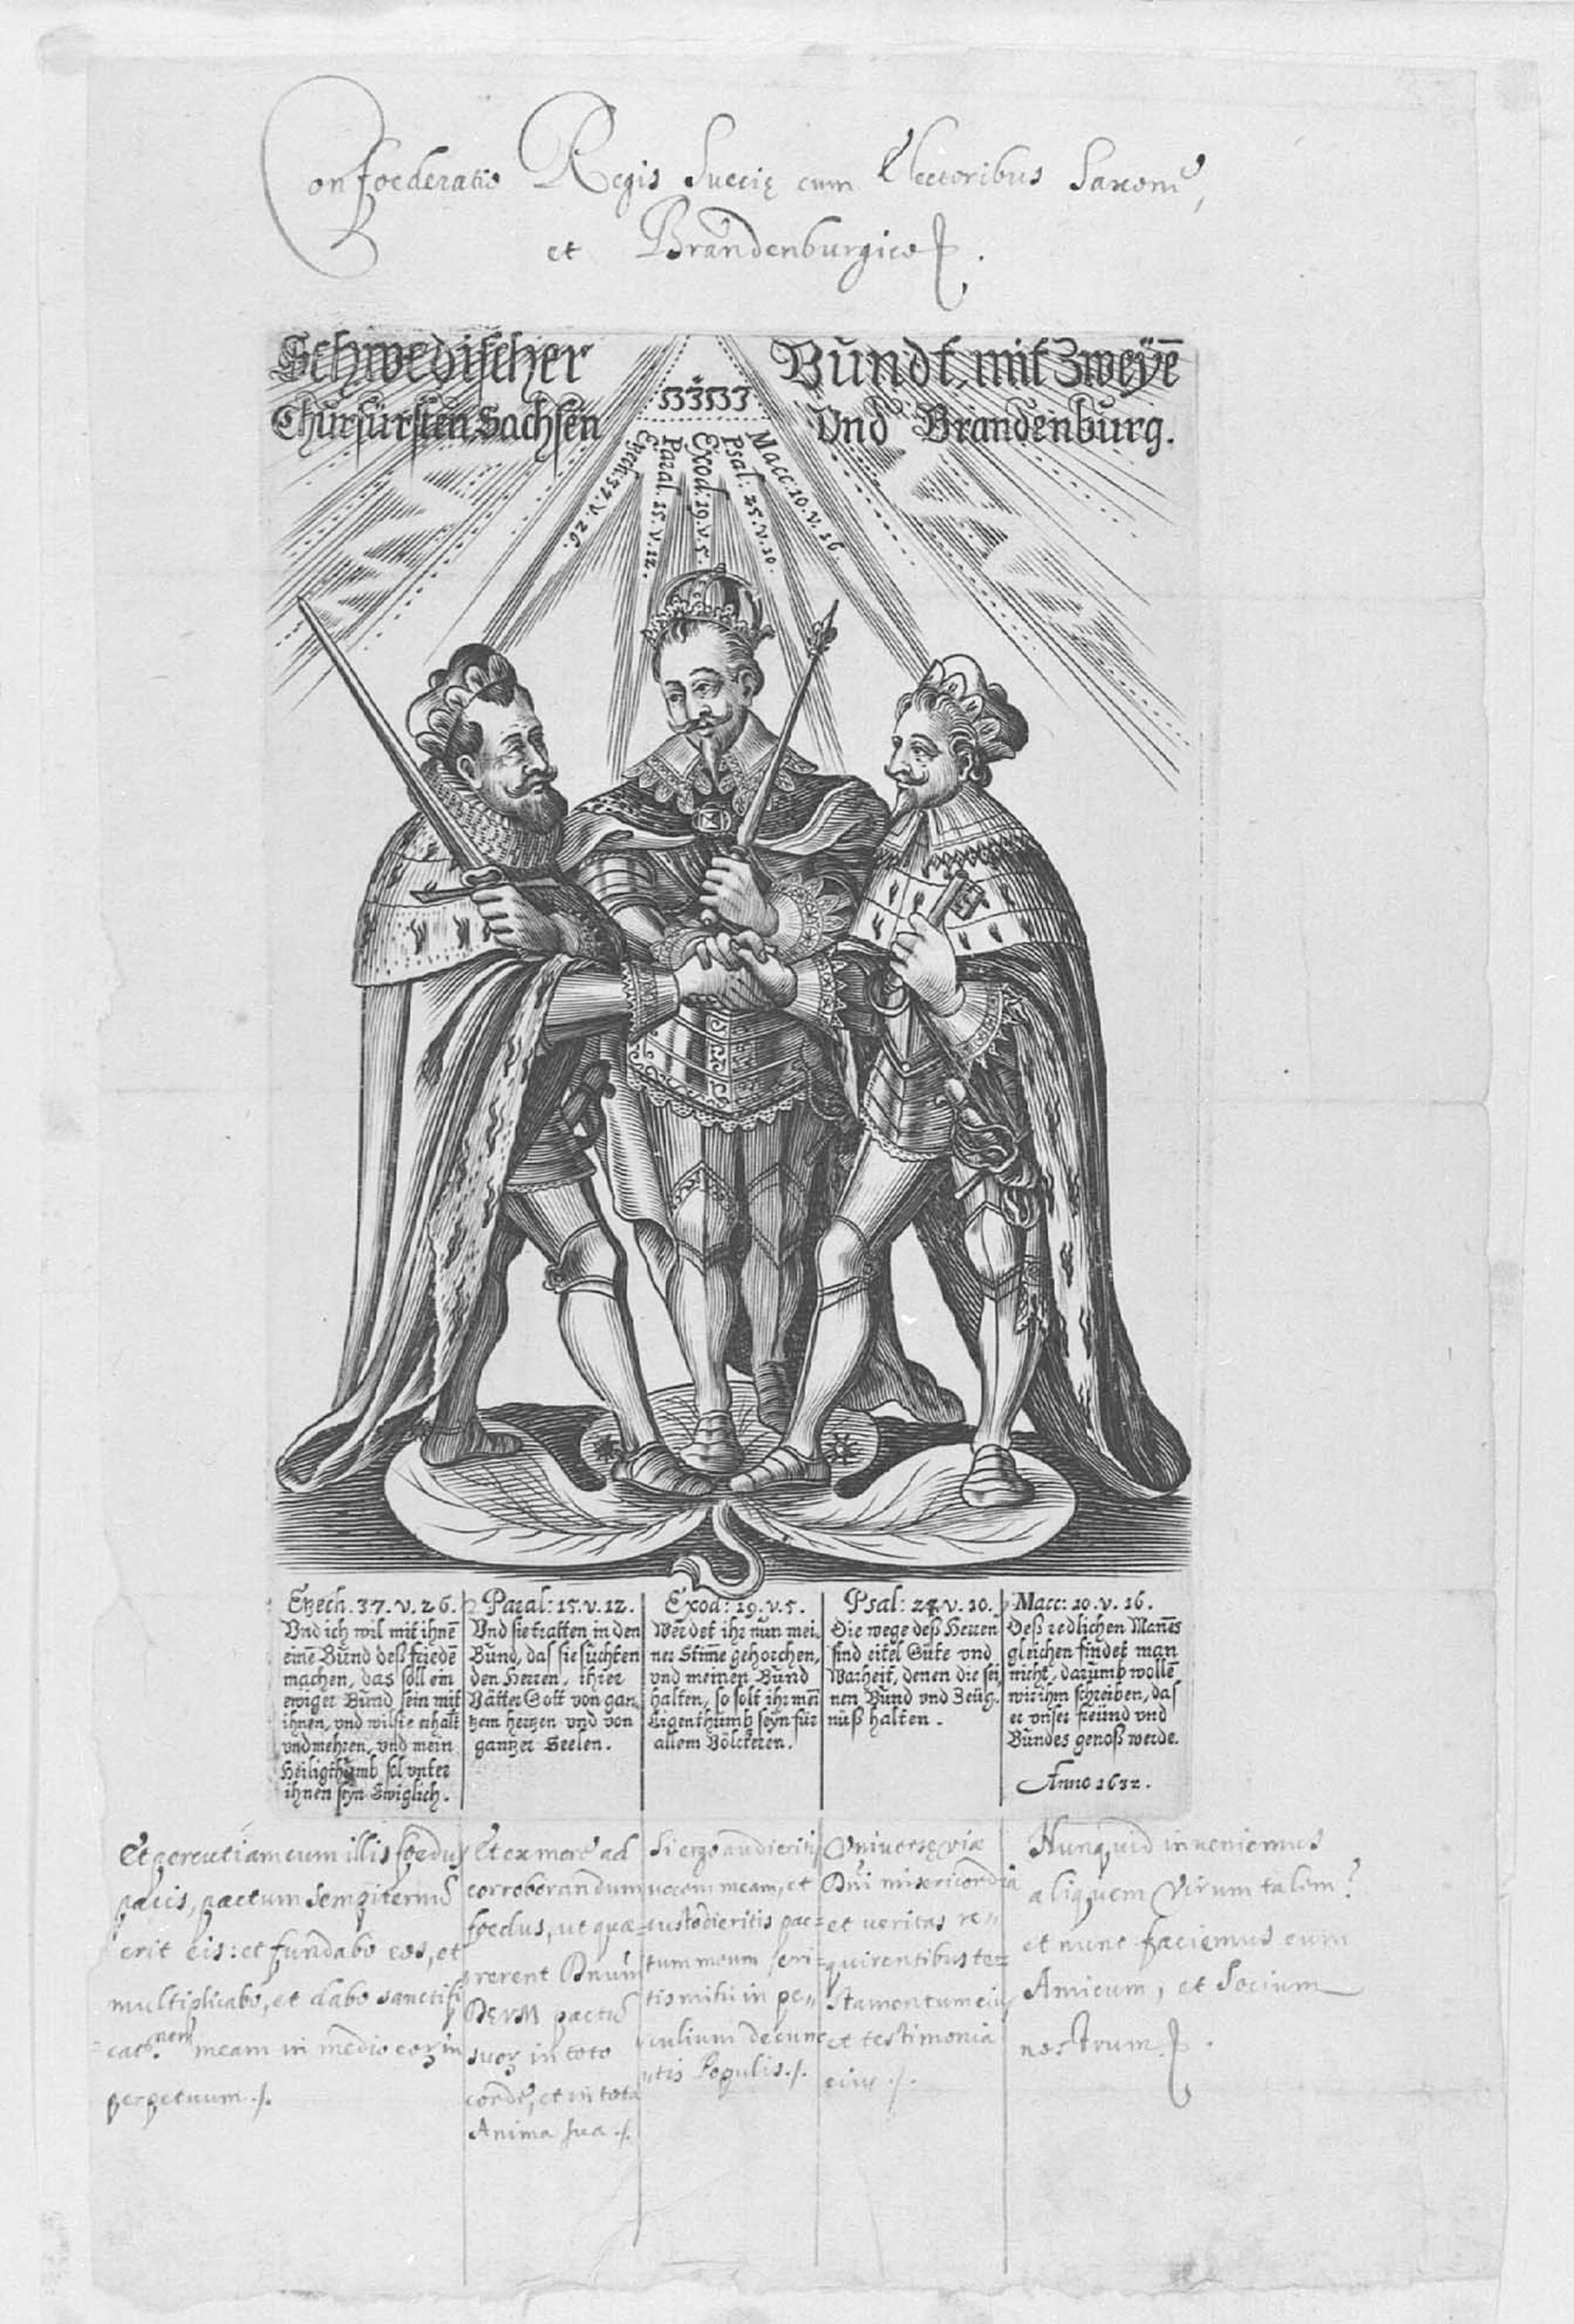 Confoederatio Regis Suecię cum Electoribus Saxonię,
et Brandenburgico.
Schwedischer Bundt, mit Zweyē
Churfürsten Sachsen Vnd Brandenburg.
Ezech. 37. v. 26.
Paral. 15. v. 12.
Exod. 19. v. 5.
Psal: 25. v. 10.
Macc. 10. v. 16.
Ezech. 37. v. 26.
Vnd ich wil mit ihnē
einē Bund deß friedē
machen, das soll ein
ewiger Bund sein mit
ihnen, vnd wil sie erhalt
vnd mehren, vnd mein
Heiligthumb sol vnter
ihnen seyn Ewiglich.
2 Paral: 15. v. 12.
Vnd sie tratten in den
Bund, das sie suchten
den Herren, ihrer
Vätter Gott von gan-
tzem hertzen vnd von
gantzer Seelen.
Exod: 19. v. 5.
Werdet ihr nun mei-
ner Stimē gehorchen,
vnd meinen Bund
halten, so solt ihr mein
Eigenthumb seyn für
allem Völckeren.
Psal: 24. v. 10.
Die wege deß Herren
sind eitel Güte vnd
Warheit, denen die sei-
nen Bund vnd Zeüg-
nüß halten.
1 Macc: 10. v. 16.
Deß redlichen Manēs
gleichen findet man
nicht, darumb wollē
wir ihm schreiben, das
er vnser freünd vnd
Bundes genoß werde.
Anno 1632.
Et percutiam cum illis foedus
pacis, pactum sempiternū
erit eis: et fundabo eos, et
multiplicabo, et dabo sanctifi
catnem meam in medio eor in
perpetuum ./.
Et ex more ad
corroborandum
foedus, ut quæ-
rerent Dnum
DEUM patrū
suor in toto
corde, et in tota
Anima sua ./.
Si ergo audieritis
vocem meam, et
custodieritis pac=
tum meum eri=
tis mihi in pe„
culium de cunc
„tis Populis ./.
Universę viæ
Dni misericordia
et veritas re„
quirentibus te=
stamentum eius
et testimonia
eius ./.
Nunquid inveniemus
aliquem Virum talem?
et nunc faciemus eum
Amicum, et Socium
nostrum.